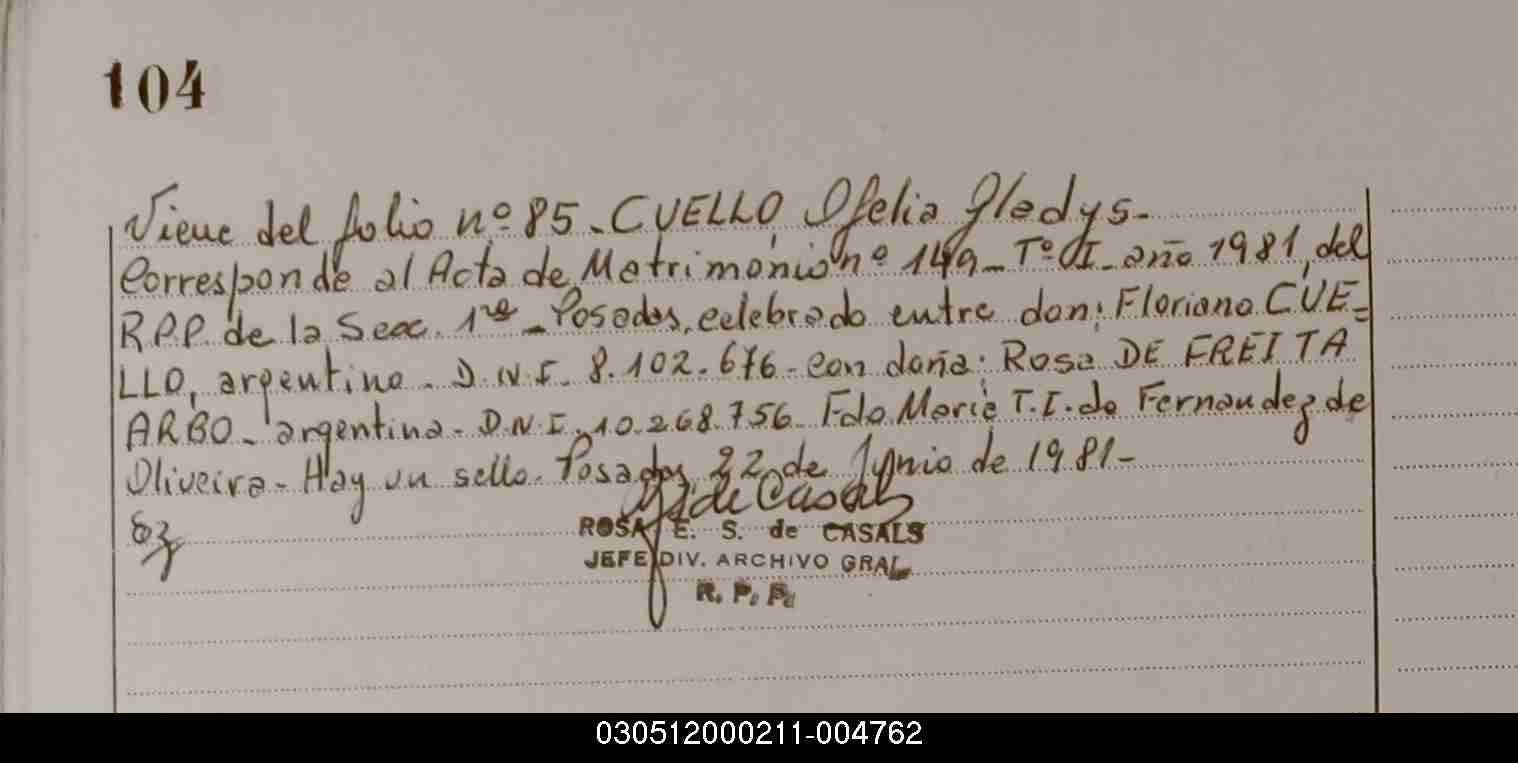 104
Viene del folio nº 85. CUELLO, Ofelia Gladys-
Corresponde al Acta de Matrimonio nº 149_ Tº I_ año 1981, del
R.P.P. de la Secc. 1ra _ Posadas, celebrado entre don: Floriano CUE=
LLO, argentino_ D.N.I. 8.102.676- con doña: Rosa DE FREITA
ARBO_ argentina_ D.N.I. 10.268.756_ Fdo. Maria T.I. de Fernandez de
Oliveira_ Hay un sello. Posadas, 22 de Junio de 1981-
ROSA E. S. de CASALS
JEFE DIV. ARCHIVO GRAL.
R. P. P.
030512000211-004762